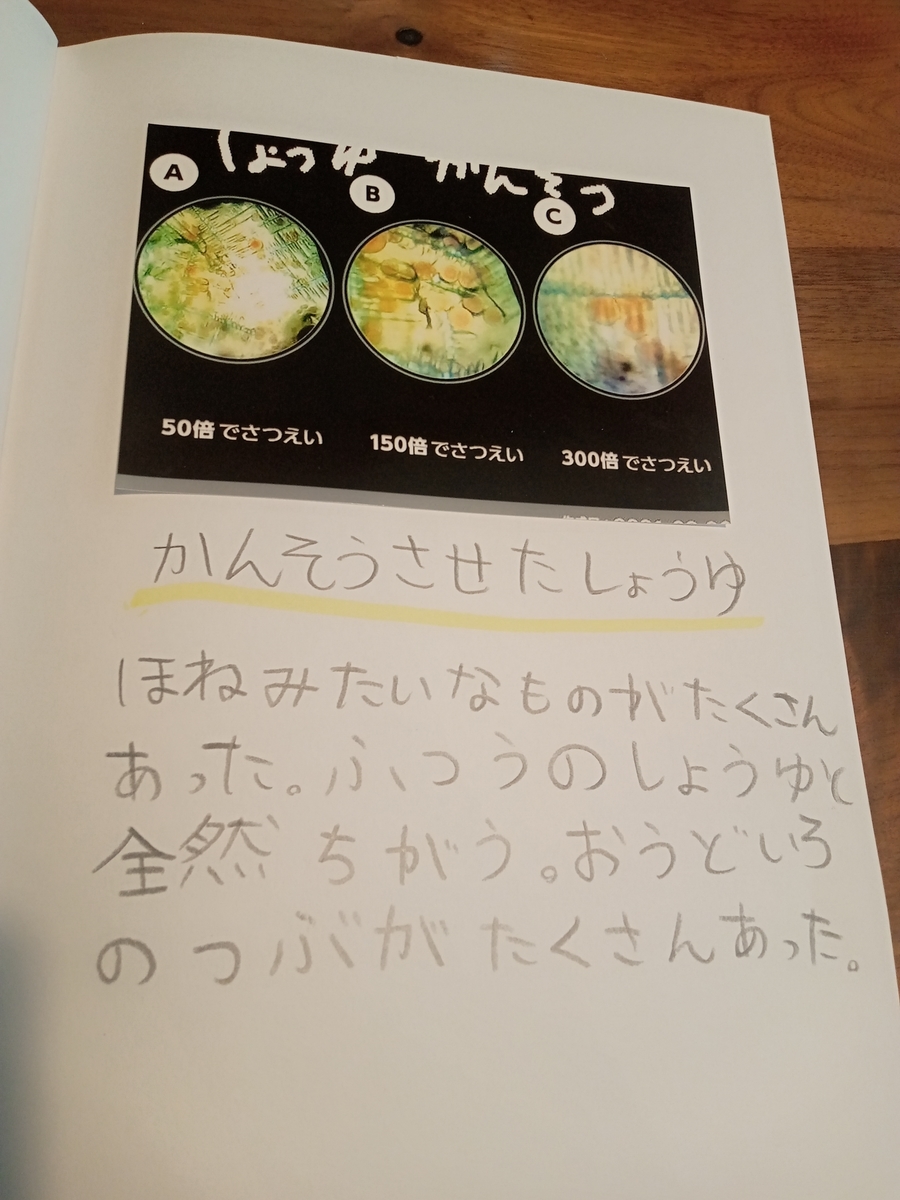 しょうゆ かんそう
A
B
C
50倍でさつえい
150倍でさつえい
300倍でさつえい
かんそうさせたしょうゆ
ほねみたいなものがたくさん
あった。ふつうのしょうゆと
全然ちがう。おうどいろ
のつぶがたくさんあった。